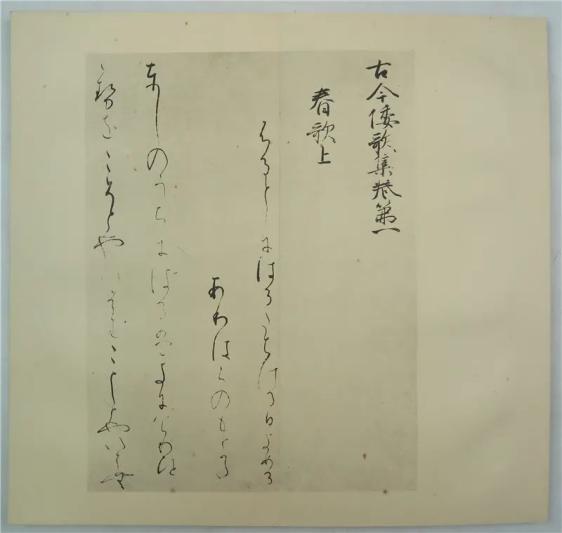 古今倭歌集巻第一
春歌上
ふるとしにはるたちける日よめる
ありはらのもとかた
としのうちにはるはきにけりひと
ゝせをこそとやいはむことしとやいはむ